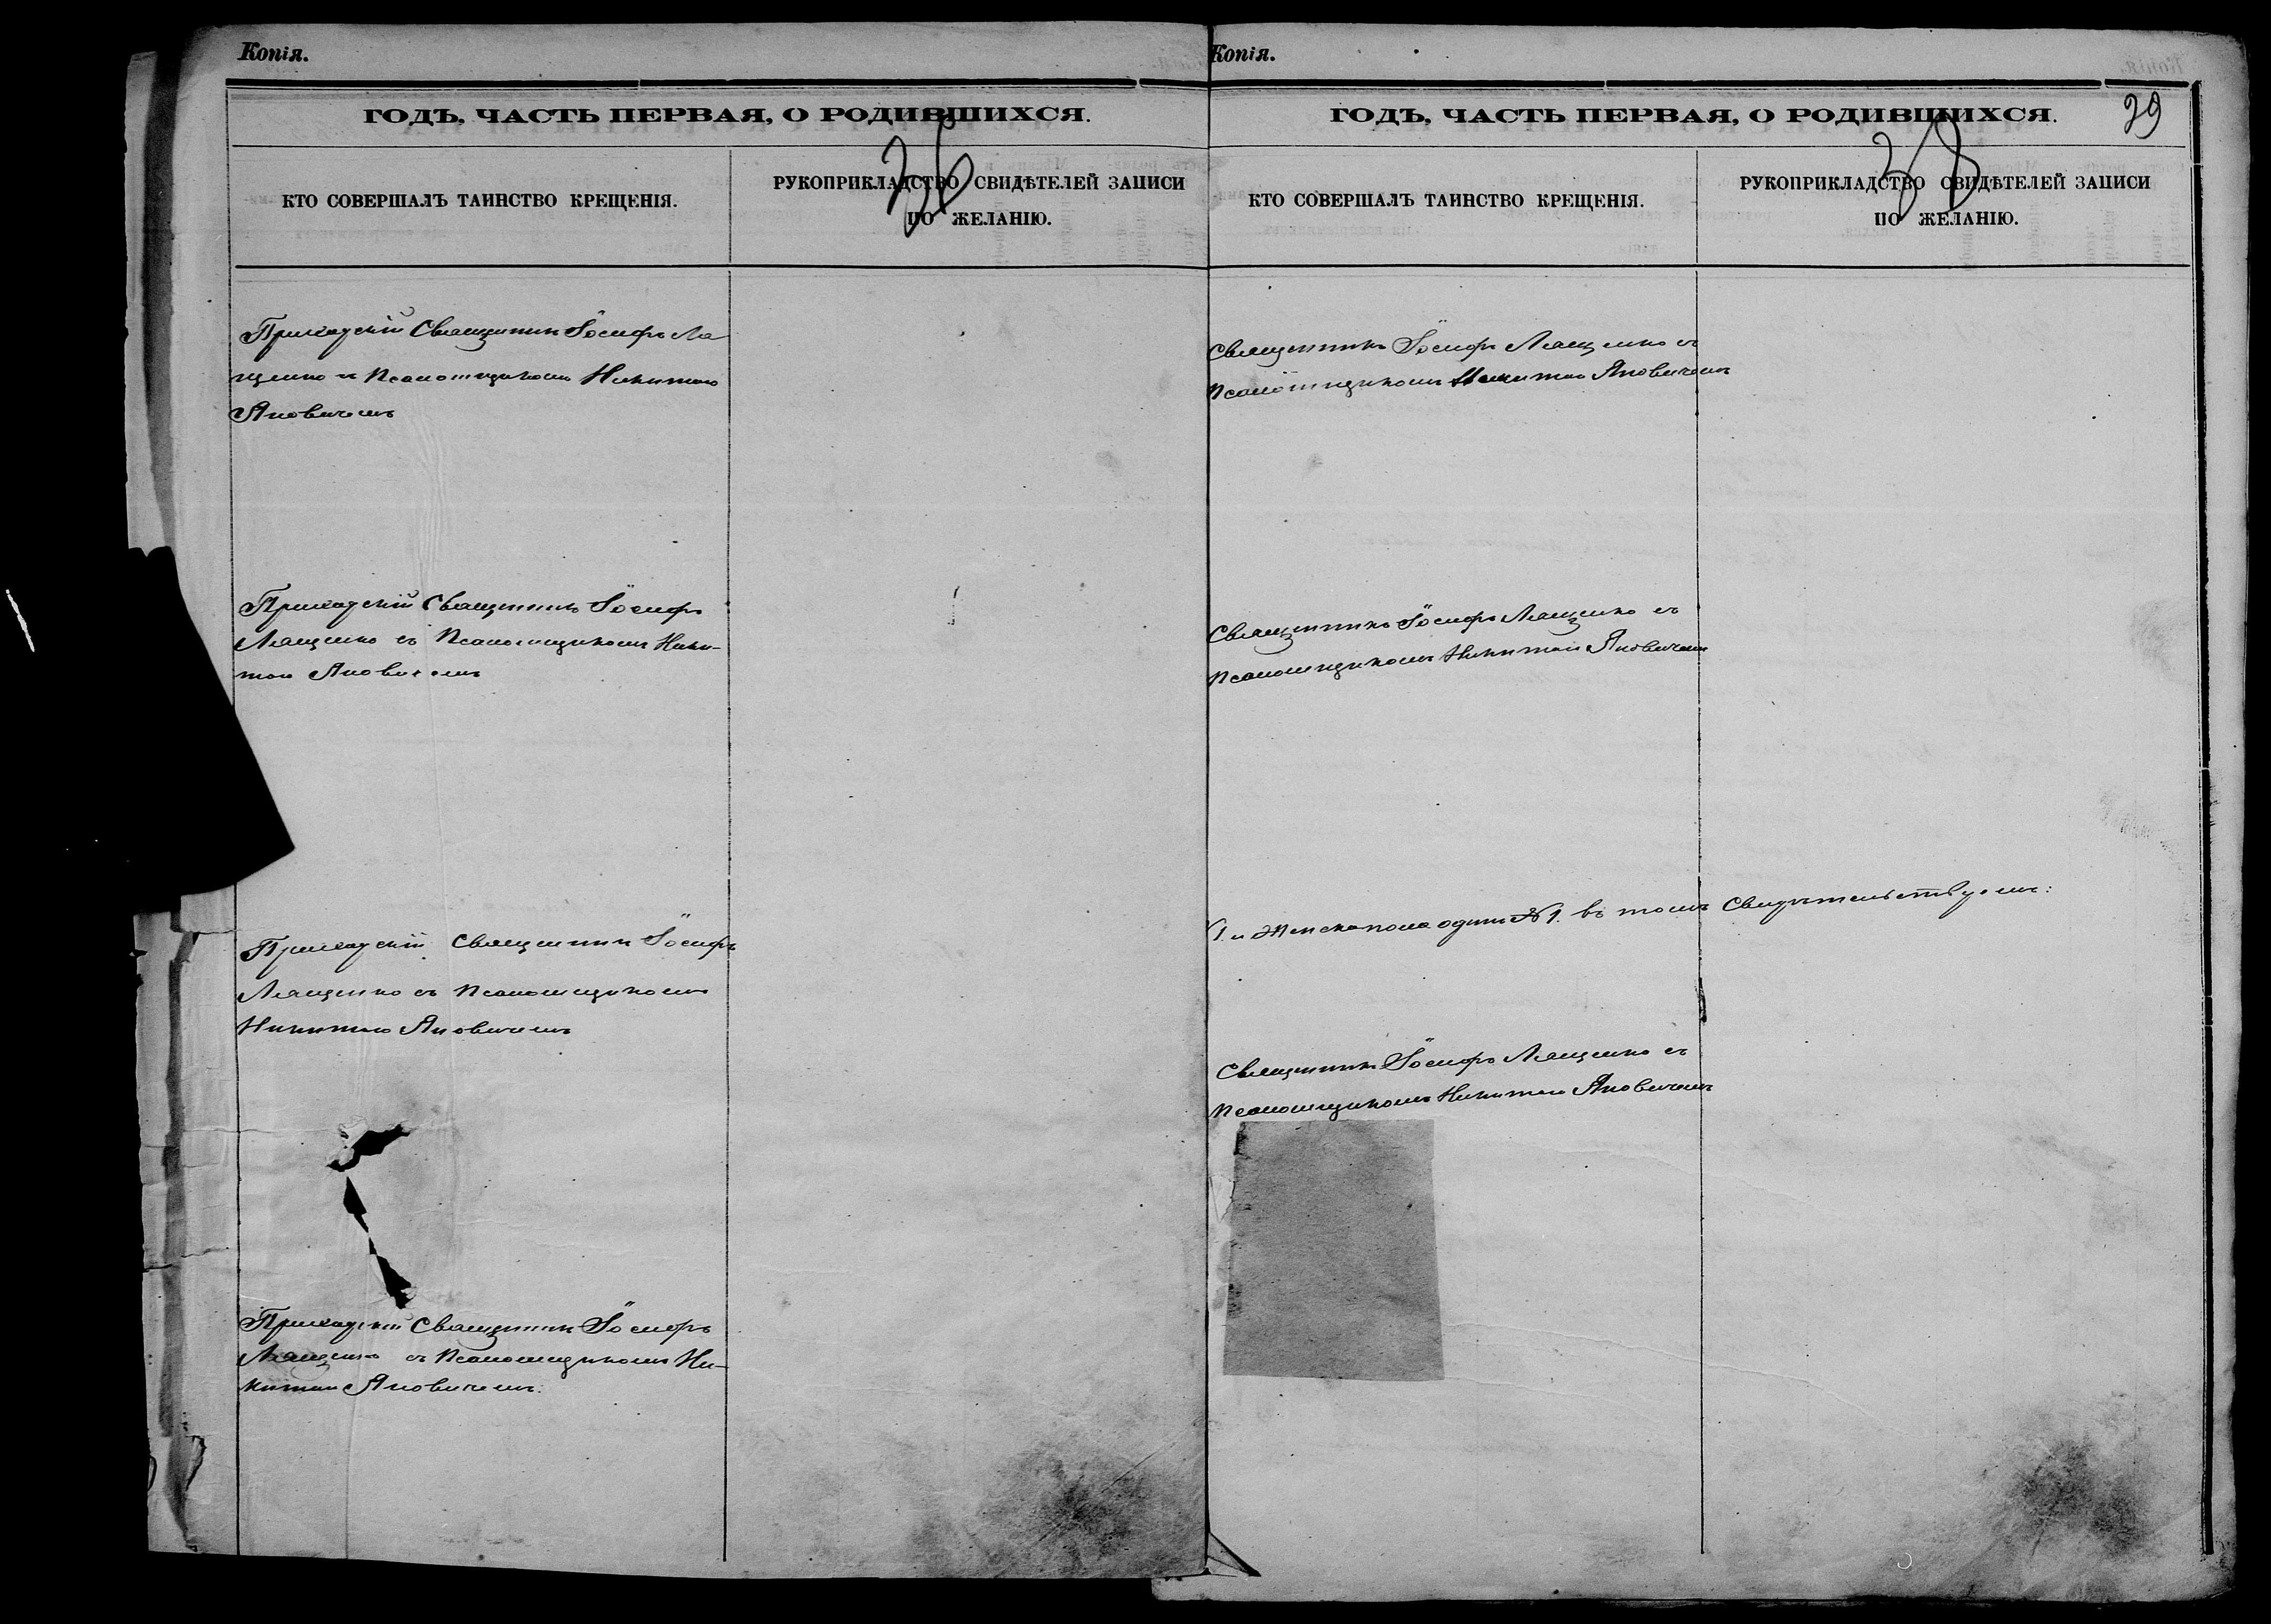 Копія.
ГОДЪ, ЧАСТЬ ПЕРВАЯ, О РОДИВШИХСЯ.
36
КТО СОВЕРШАЛЪ ТАИНСТВО КРЕЩЕНІЯ.
РУКОПРИКЛАДСТВО СВИДѢТЕЛЕЙ ЗАПИСИ
ПО ЖЕЛАНІЮ.
Приходскій Священникъ Іосифъ Ля
щенко съ Псаломщикомъ Никитою
Яновичемъ
Приходскій Священникъ Іосифъ
Лященко съ Псаломщикомъ Ники-
тою Яновичемъ
Приходскій Священникъ Іосифъ
Лященко съ Псаломщикомъ
Никитою Яновичемъ
Приходскій Священникъ Іосифъ
Лященко съ Псаломщикомъ Ни-
китою Яновичемъ.
Копія.
ГОДЪ, ЧАСТЬ ПЕРВАЯ, О РОДИВШИХСЯ.
39
КТО СОВЕРШАЛЪ ТАИНСТВО КРЕЩЕНІЯ.
РУКОПРИКЛАДСТВО СВИДѢТЕЛЕЙ ЗАПИСИ
ПО ЖЕЛАНІЮ.
Священникъ Іосифъ Лященко съ
Псаломщикомъ Никитою Яновичемъ
Священникъ Іосифъ Лященко съ
Псаломщикомъ Никитою Яновичемъ
1. и Женска пола одинъ №1. въ томъ Свидѣтельствуемъ:
Священникъ Іосифъ Лященко съ
Псаломщикомъ Никитою Яновичемъ